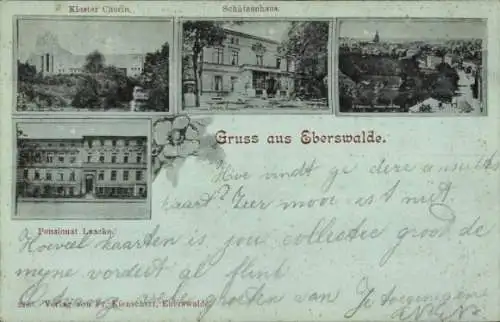 Kloster Chorin.
Schützenhaus.
Gruss aus Eberswalde.
Hoe vindt ge deze ansichts
kaart? Zeer mooi is 't niet.
Pensionat Laacke.
Hoeveel kaarten is jou collectie groot de
mijne vordert al flink
groeten van Je toegenegen
Verlag von Fr. Klenschert, Eberswalde.